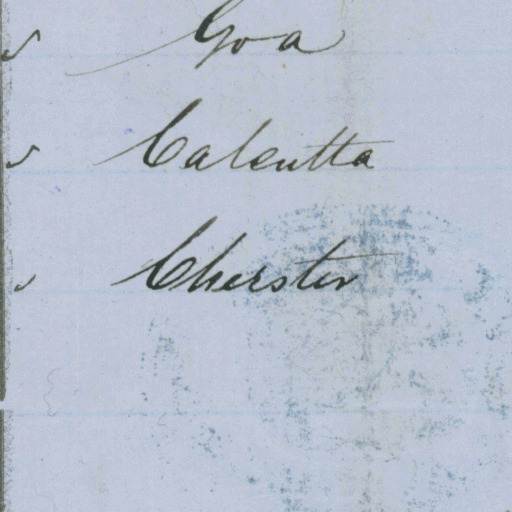 s Goa
s Calcutta
s Cherster